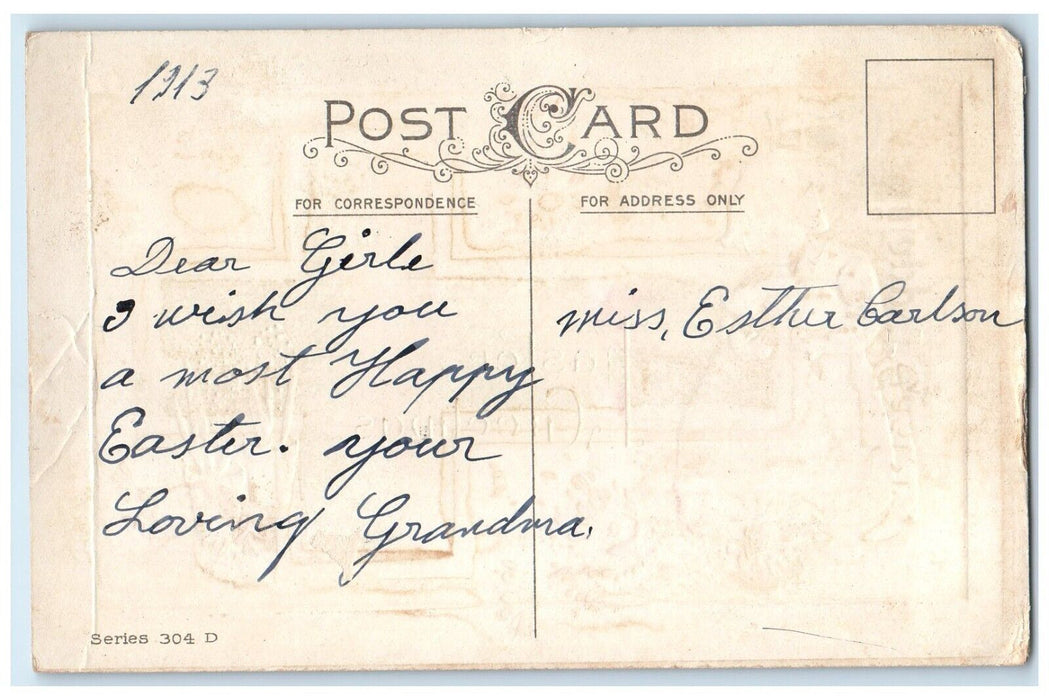 1913
POST CARD
FOR CORRESPONDENCE
FOR ADDRESS ONLY
Dear Girle
I wish you
a most Happy
Easter. your
Loving Grandma.
miss, Esther Carlson
Series 304 D